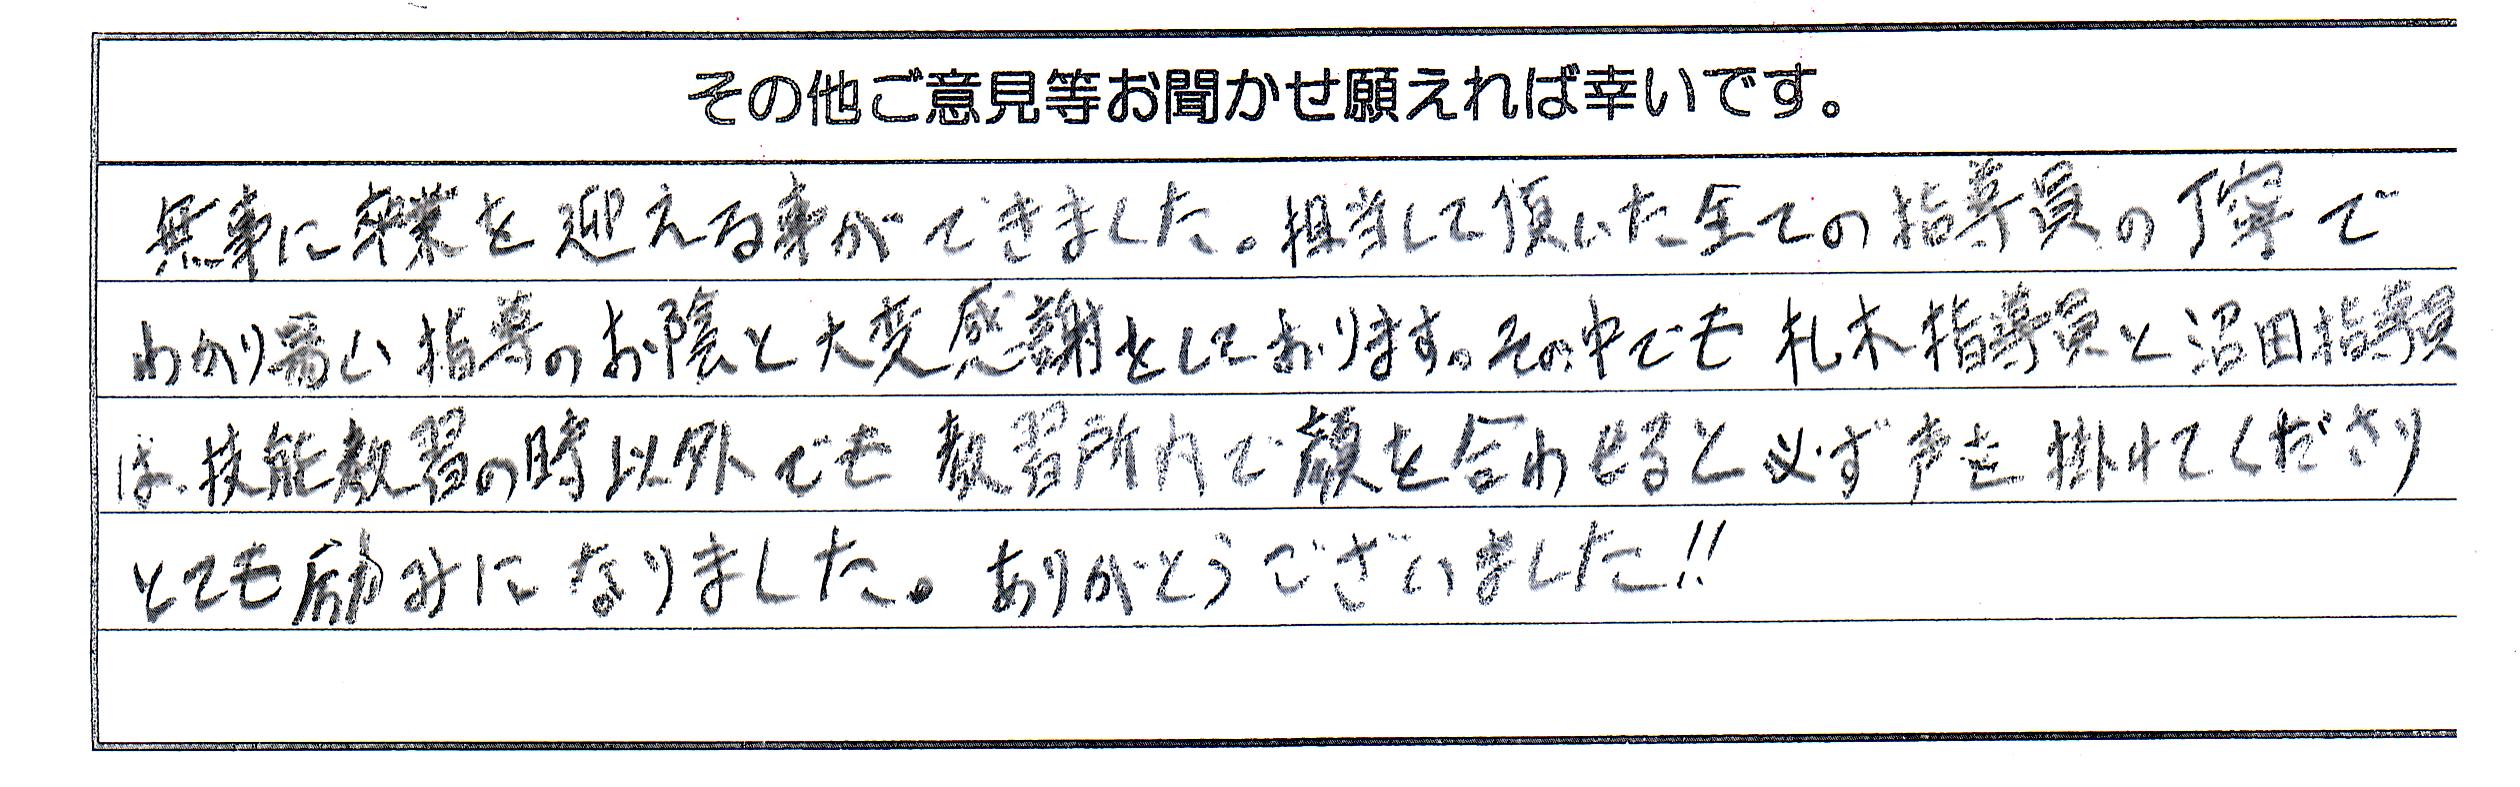 その他ご意見等お聞かせ願えれば幸いです。
無事に卒業を迎える事ができました。担当して頂いた全ての指導員の丁寧で
わかり易い指導のお陰と大変感謝をしております。その中でも札木指導員と沼田指導員
は、技能教習の時以外でも教習所内で顔を合わせると必ず声を掛けてくださり
とても励みになりました。ありがとうございました!!